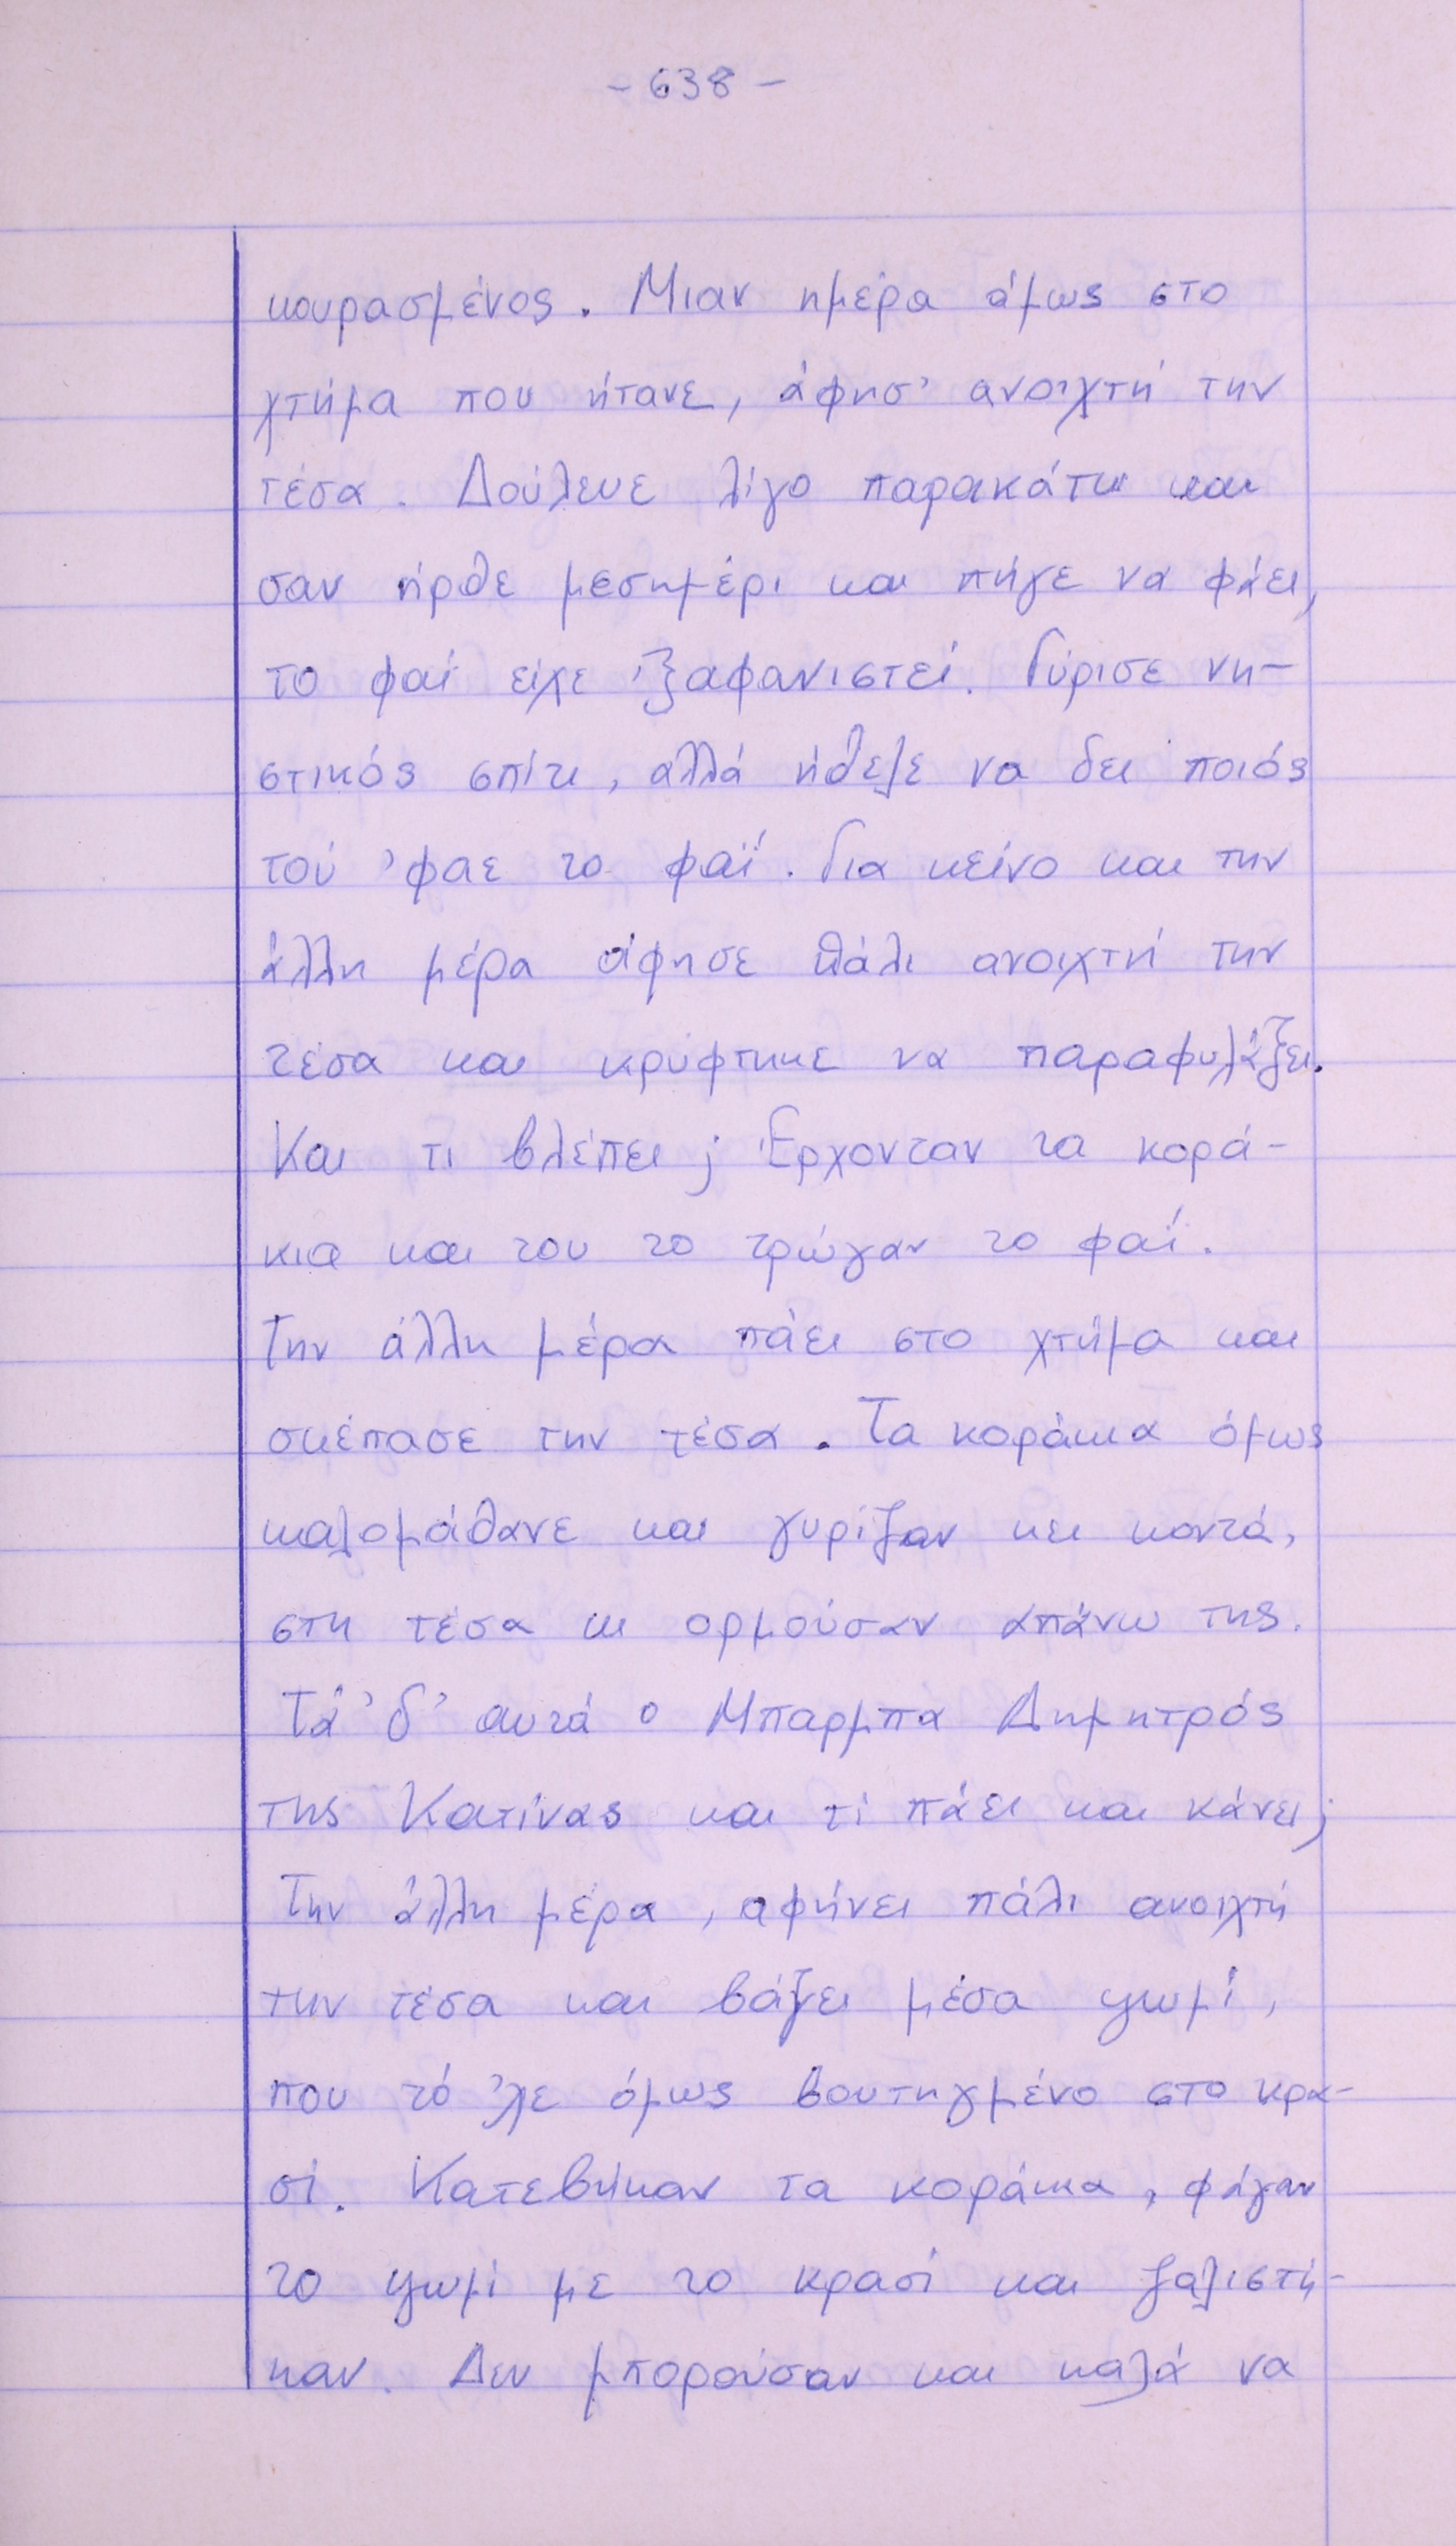 - 638 -
κουρασμένος. Μιαν ημέρα όμως στο
χτήμα που ήτανε, άφησ' ανοιχτή την
τέσα. Δούλευε λίγο παρακάτω και
σαν ήρθε μεσημέρι και πήγε να φάει,
το φαί είχε 'ξαφανιστεί. Γύρισε νη-
στικός σπίτι, αλλά ήθελε να δει ποιός
τού 'φαε το φαΐ. Για κείνο και την
άλλη μέρα άφησε πάλι ανοιχτή την
τέσα και κρύφτηκε να παραφυλάξει.
Και τι βλέπει; Έρχονταν τα κορά-
κια και του το τρώγαν το φαί.
Την άλλη μέρα πάει στο χτήμα και
σκέπασε την τέσα. Τα κοράκια όμως
καλομάθανε και γυρίζαν κει κοντά,
στη τέσα κι ορμούσαν απάνω της.
Τά 'δ' αυτά ο Μπαρμπα Δημητρός
της Κατίνας και τί πάει και κάνει;
Την άλλη μέρα, αφήνει πάλι ανοιχτή
την τέσα και βάζει μέσα ψωμί,
που τό 'χε όμως βουτηγμένο στο κρα-
σί. Κατεβήκαν τα κοράκια, φάγαν
το ψωμί με το κρασί και ζαλιστή-
καν. Δεν μπορούσαν και καλά να